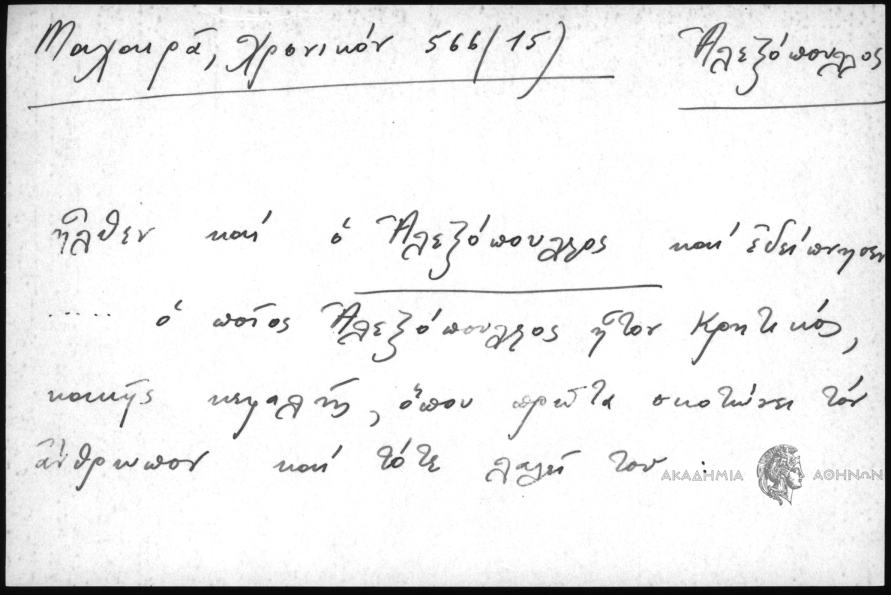 Μαχαιρᾶ, Χρονικόν 566/15) Ἀλεξόπουλλος
ἦλθεν καὶ ὁ Ἀλεξόπουλλος καὶ ἐδείπνησεν
..... ὁ ποῖος Ἀλεξόπουλλος ἦτον Κρητικός,
κακῆς κεφαλῆς, ὅπου πρῶτα σκοτώνει τὸν
ἄνθρωπον καὶ τότε λαλεῖ του :
ΑΚΑΔΗΜΙΑ ΑΘΗΝΩΝ